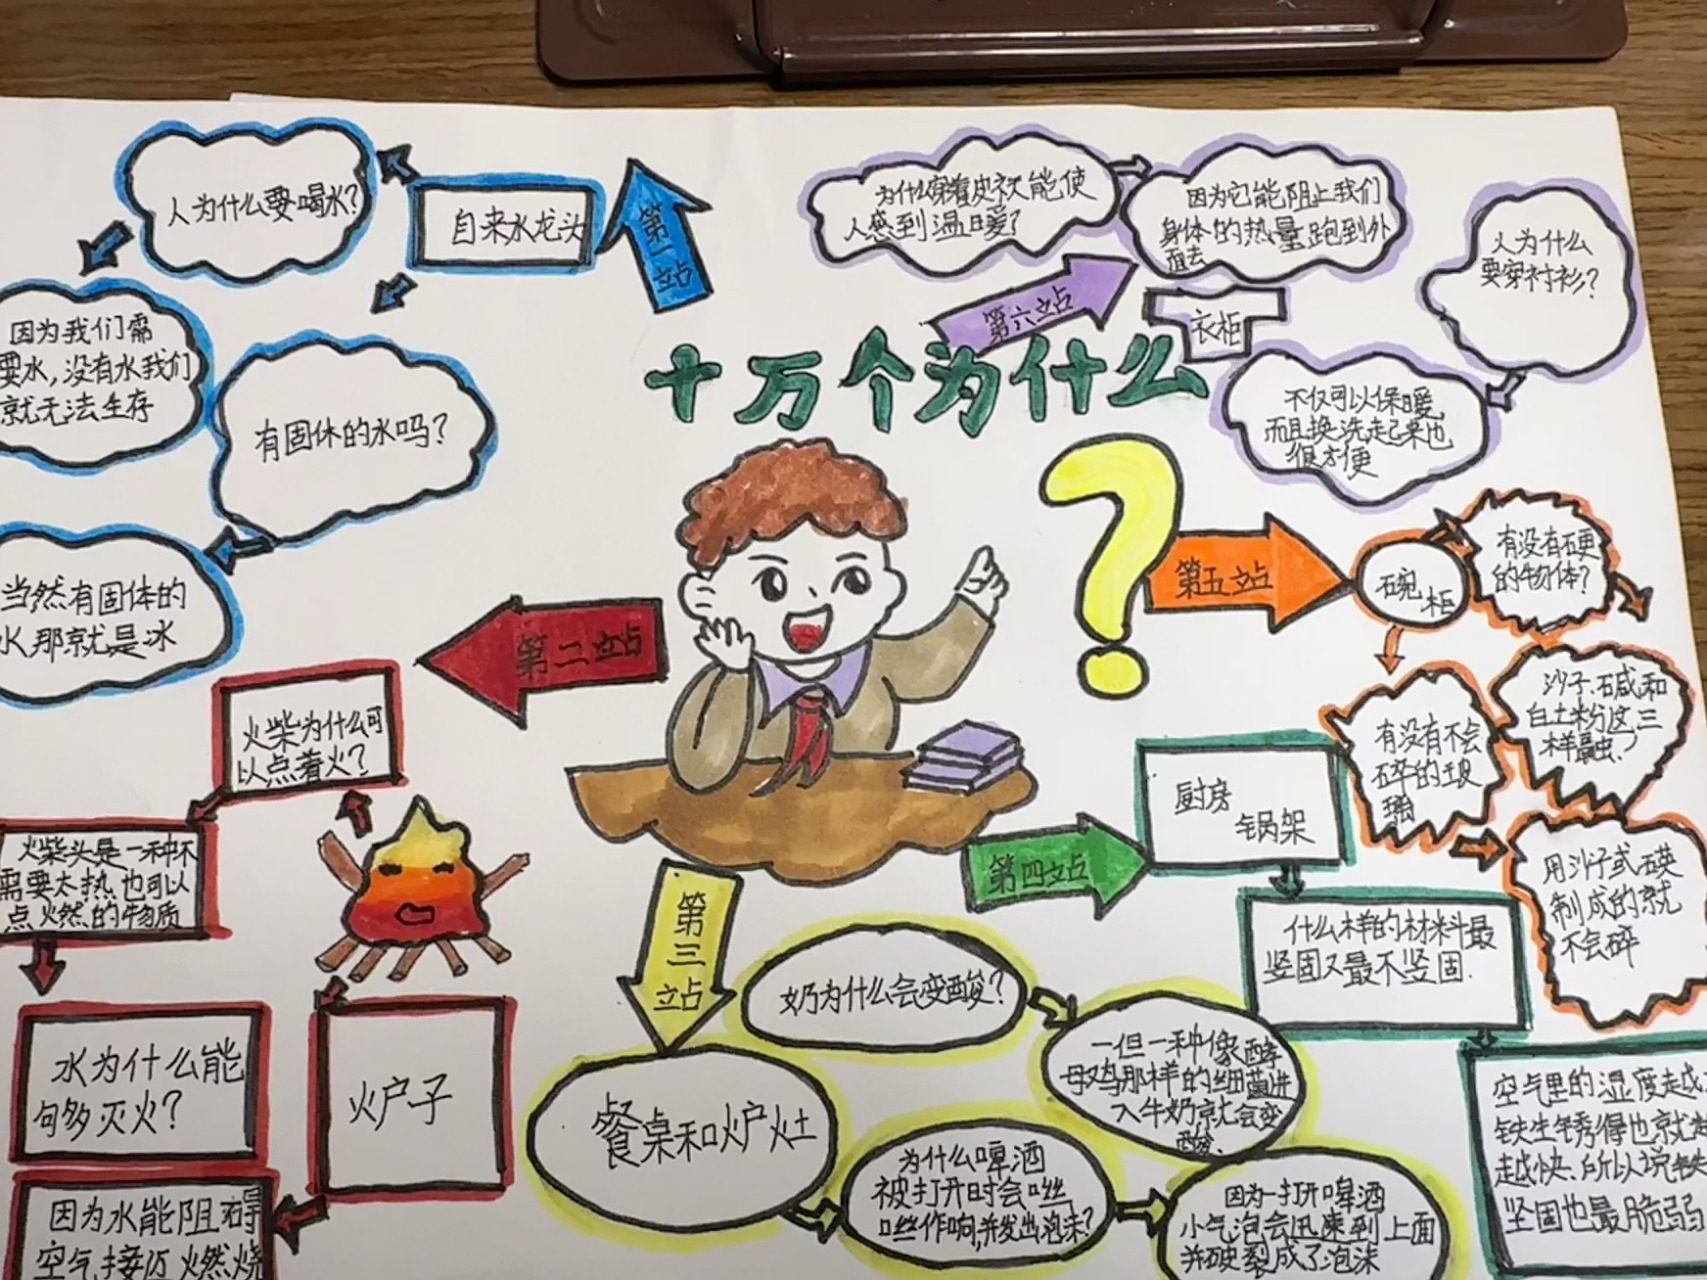 十万个为什么
第一站
自来水龙头
人为什么要喝水?
因为我们需
要水,没有水我们
就无法生存
有固体的水吗?
当然有固体的
水那就是冰
第二站
火柴为什么可
以点着火?
火柴头是一种不
需要太热也可以
点燃的物质
火户子
水为什么能
句多灭火?
因为水能阻碍
空气接近燃烧
第三站
餐桌和炉灶
奶为什么会变酸?
一但一种像酵
母鸡那样的细菌进
入牛奶就会变
酸.
为什么啤酒
被打开时会咝
咝作响,并发出泡沫?
因为一打开啤酒
小气泡会迅速到上面
并破裂成了泡沫
第四站
厨房
锅架
什么样的材料最
坚固又最不坚固.
空气里的湿度越
铁生锈得也就越
越快.所以说铁
坚固也最脆弱
第五站
碗柜
有没有硬
的物体?
沙子、碱和
白土粉这三
样最
有没有不会
碎的玻
璃
用沙子或
制成的就
不会碎
第六站
衣柜
为什么穿着皮衣能使
人感到温暖?
因为它能阻止我们
身体的热量跑到外
面去
人为什么
要穿衬衫?
不仅可以保暖,
而且换洗起来也
很方便